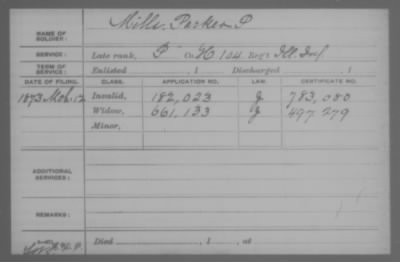 NAME OF SOLDIER: Mills, Parker P
SERVICE: Late rank, P Co. H 104 Reg't Ill. Inf
TERM OF SERVICE: Enlisted , 1 Discharged , 1
DATE OF FILING. CLASS. APPLICATION NO. LAW. CERTIFICATE NO.
1873 Mch. 12 Invalid, 182,023 J 783,080
Widow, 661,133 J 497,279
Minor,
ADDITIONAL SERVICES:
REMARKS:
Died , 1 , at